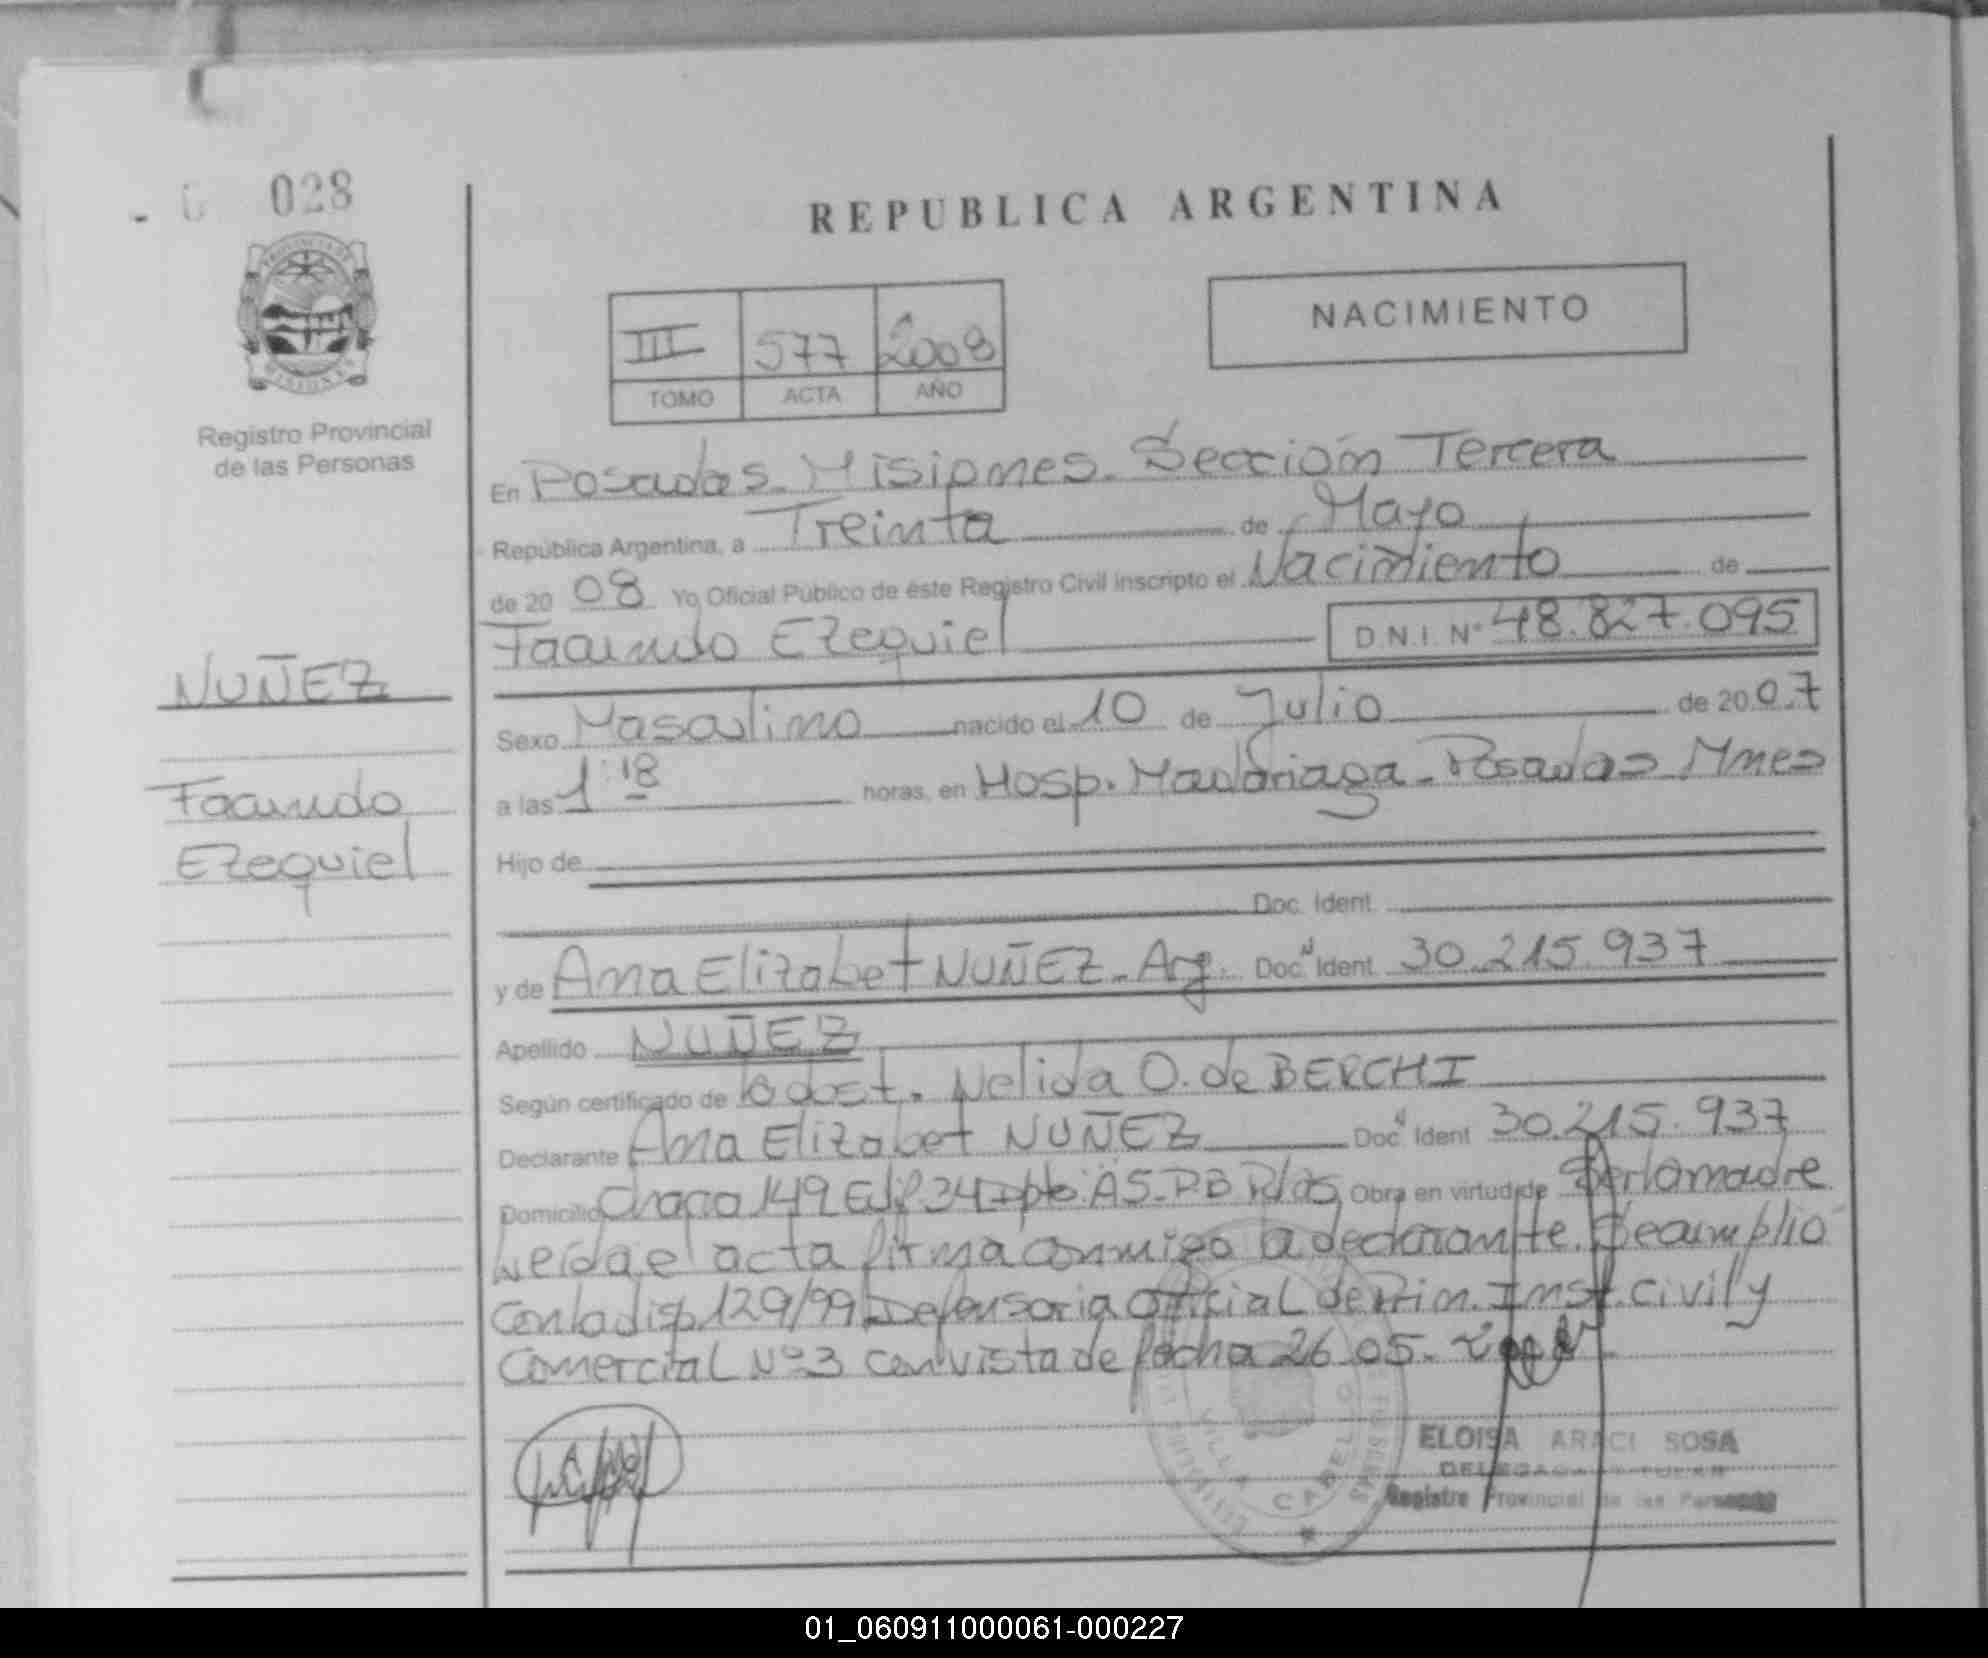 028
REPUBLICA ARGENTINA
NACIMIENTO
III 577 2008
TOMO ACTA AÑO
PROVINCIA DE
MISIONES
Registro Provincial
de las Personas
En Posadas - Misiones - Sección Tercera
República Argentina, a Treinta de Mayo
de 20 08 Yo Oficial Público de éste Registro Civil inscripto el Nacimiento de
Facundo Ezequiel D.N.I. Nº 48.827.095
NUÑEZ
Facundo
Ezequiel
Sexo Masculino nacido el 10 de Julio de 20 07
a las 1:18 horas, en Hosp. Madariaga - Posadas Mnes
Hijo de
Doc. Ident.
y de Ana Elizabet NUÑEZ - Arg. Doc. Ident. 30.215.937
Apellido NUÑEZ
Según certificado de la obst. Nelida O. de BERCHI
Declarante Ana Elizabet NUÑEZ Doc. Ident 30.215.937
Domicilio Chaca 149 Edif 34 Dpto A5 - PB Pdas Obra en virtud de Ser la madre
Leída el acta firma conmigo la declarante. Se amplio
con la disp 129/99 Defensoria Oficial de Prim. Inst. Civil y
Comercial Nº 3 con vista de fecha 26.05.
VILLA CABELLO
ELOISA ARACI SOSA
DELEGADA TITULAR
Registro Provincial de las Personas
01_060911000061-000227